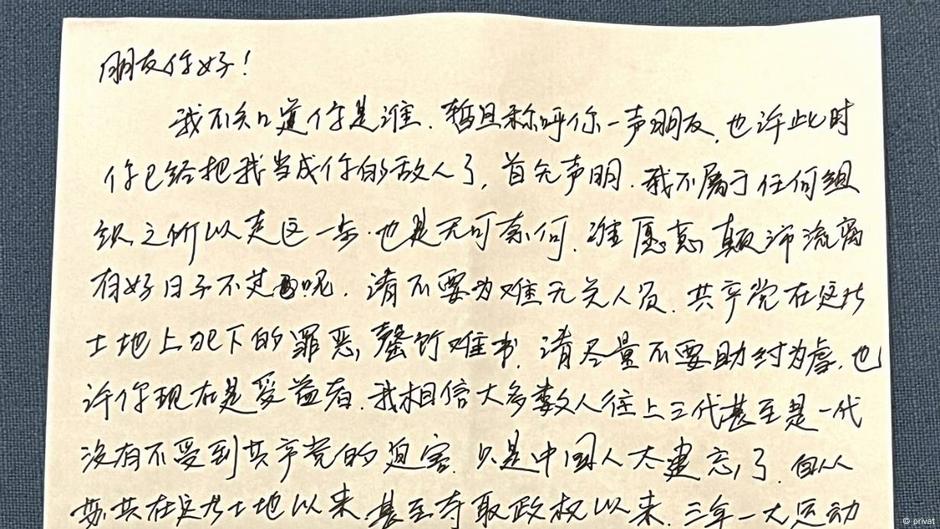 朋友你好!
我不知道你是谁.暂且称呼你一声朋友,也许此时
你已经把我当成你的敌人了,首先声明.我不属于任何组
织之所以走这一步.也是无可奈何.谁愿意颠沛流离
有好日子不过呢.请不要为难无关人员.共产党在这片
土地上犯下的罪恶,罄竹难书.请尽量不要助纣为虐.也
许你现在是受益者.我相信大多数人往上三代甚至是一代
没有不受到共产党的迫害.只是中国人太健忘了.自从
共在这片土地以来.甚至夺取政权以来.三年一大运动
© privat